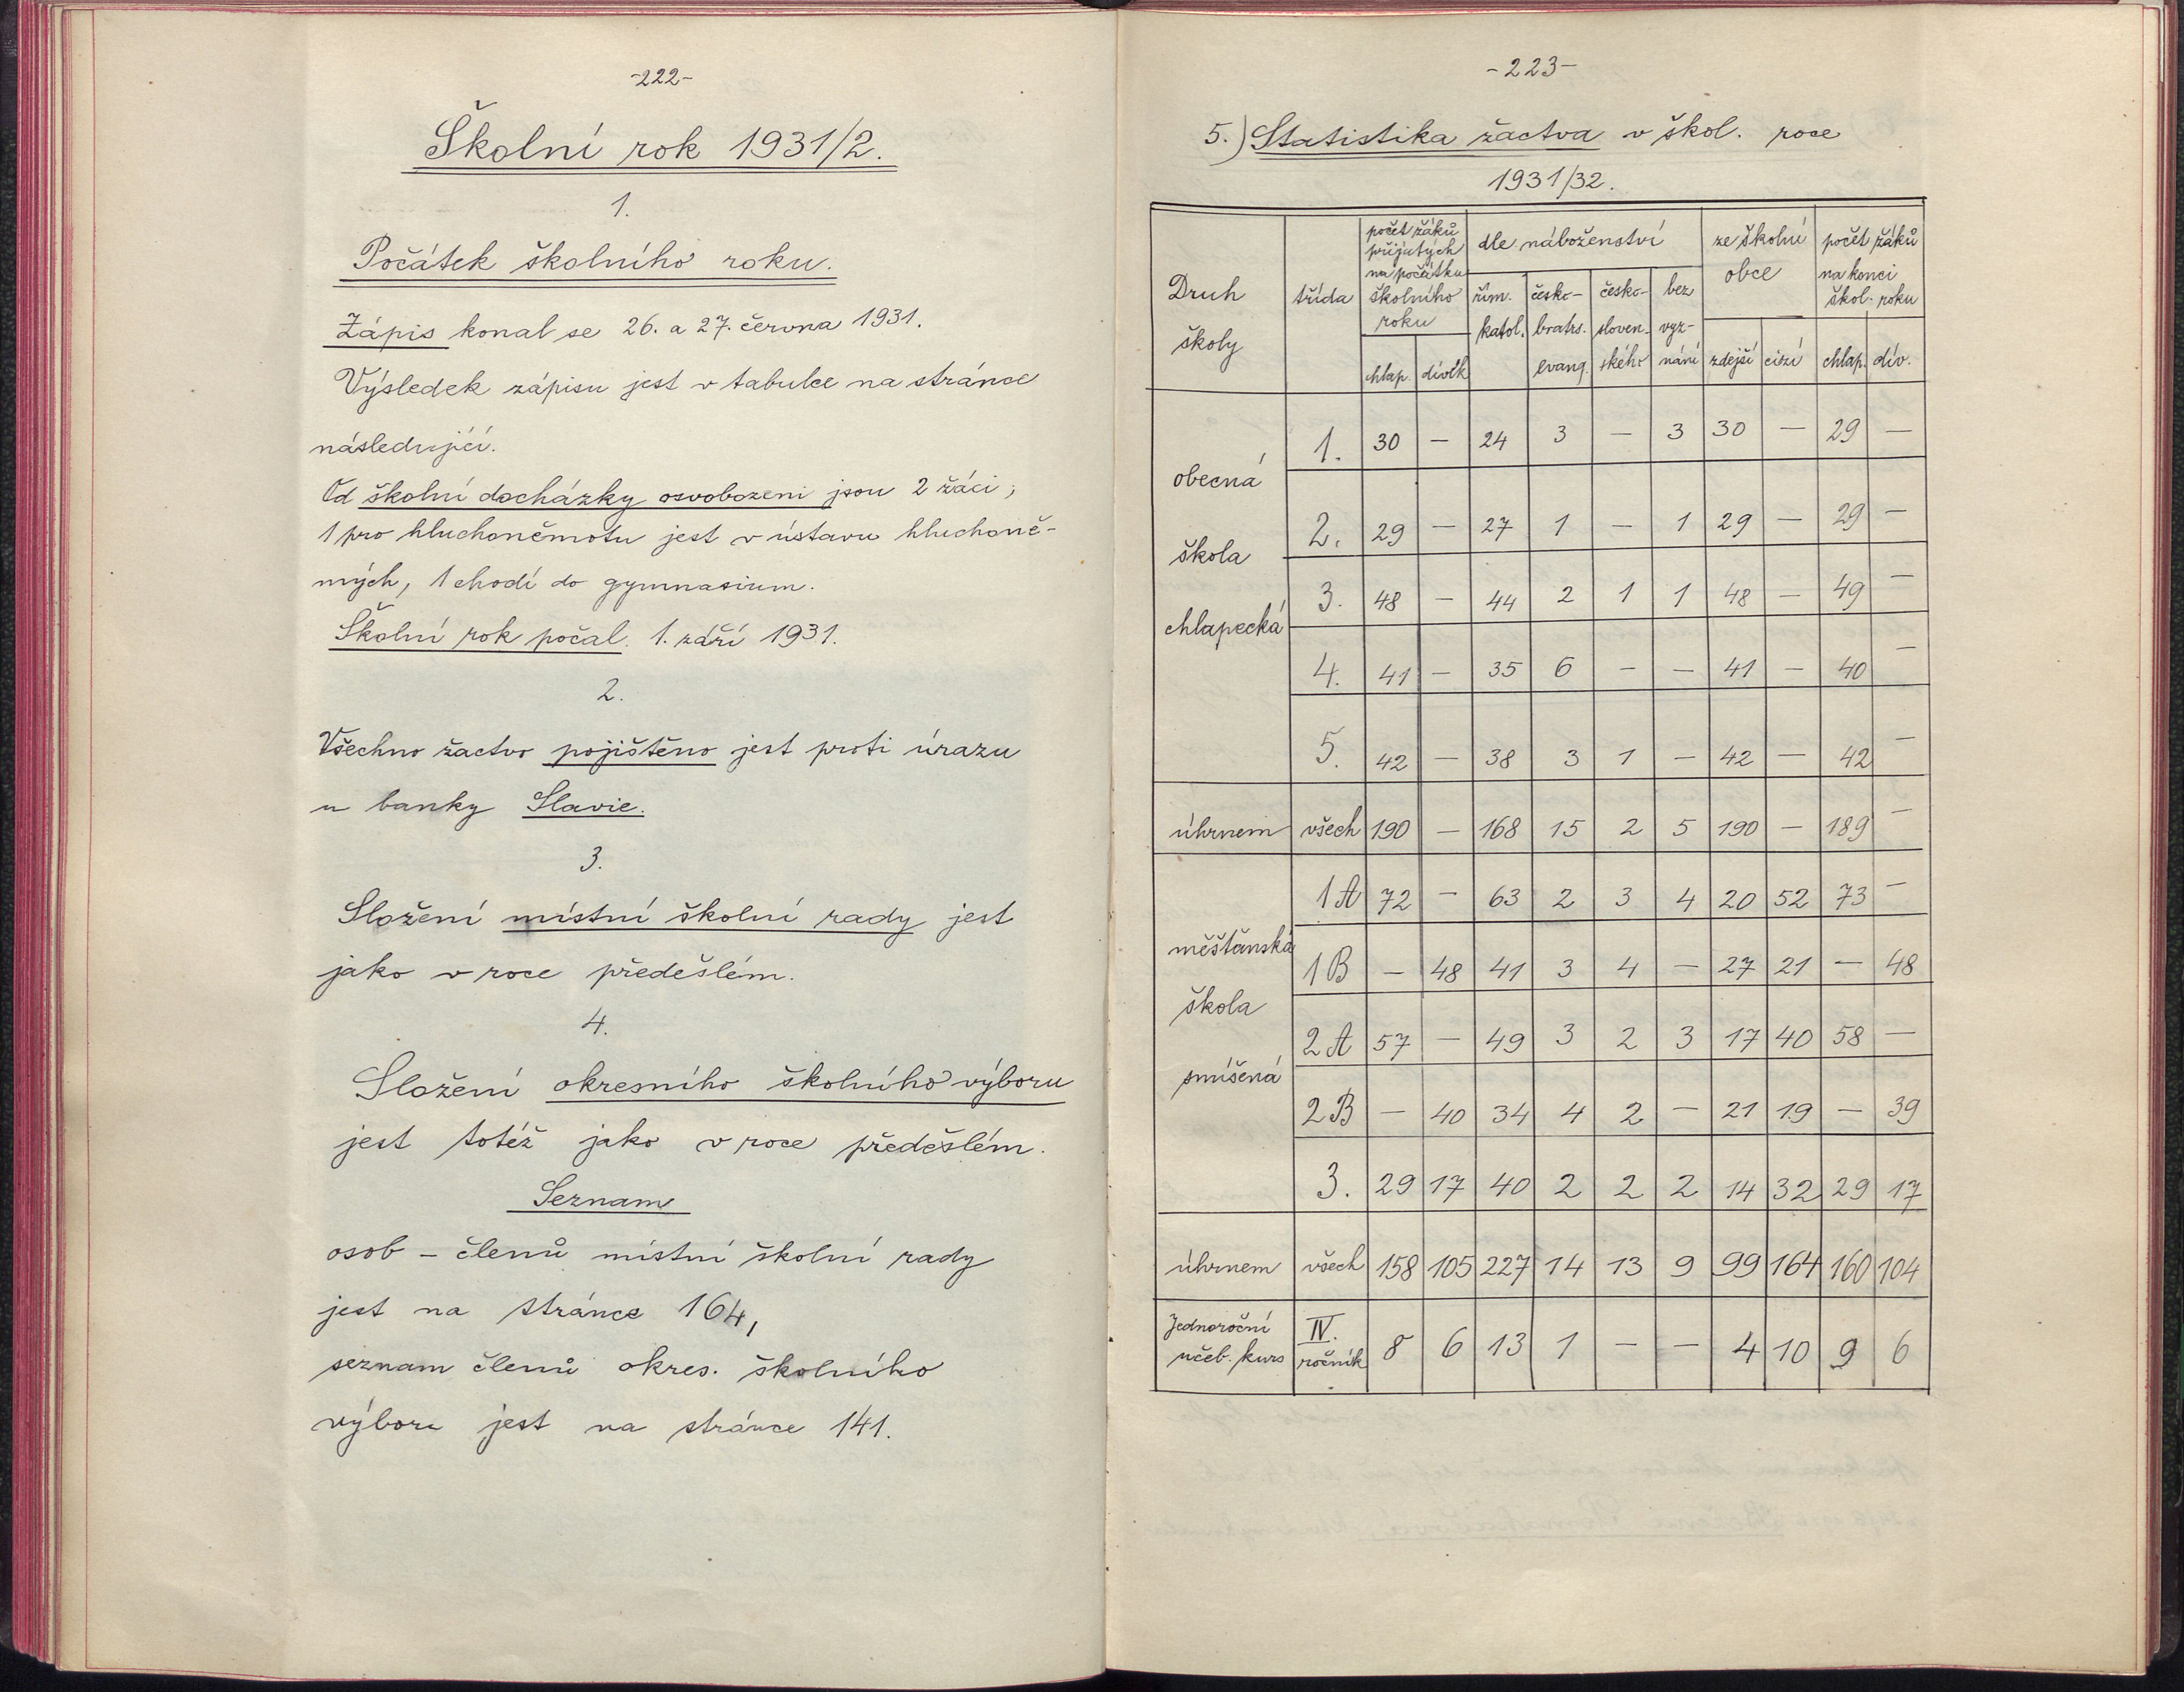 -222-
Školní rok 1931/2.
1.
Počátek školního roku.
Zápis konal se 26. a 27. června 1931.
Výsledek zápisu jest v tabulce na stránce
následující.
Od školní docházky osvobozeni jsou 2 žáci;
1 pro hluchoněmotu jest v ústavu hluchoně-
mých, 1 chodí do gymnasium.
Školní rok počal 1. září 1931.
2.
Všechno žactvo pojištěno jest proti úrazu
u banky Slavie.
3.
Složení místní školní rady jest
jako v roce předešlém.
4.
Složení okresního školního výboru
jest totéž jako v roce předešlém.
Seznam
osob – členů místní školní rady
jest na stránce 164,
seznam členů okres. školního
výboru jest na stránce 141.
-223-
5.) Statistika žactva v škol. roce
1931/32.
Druh školy | třída | počet žáků přijatých na počátku školního roku | dle náboženství | ze školní obce | počet žáků na konci škol. roku
chlap. | dívek | řím. katol. | česko-bratrs. evang. | česko-sloven-ského | bez vyz-nání | zdejší | cizí | chlap. | dív.
obecná škola chlapecká
1. | 30 | — | 24 | 3 | — | 3 | 30 | — | 29 | —
2. | 29 | — | 27 | 1 | — | 1 | 29 | — | 29 | —
3. | 48 | — | 44 | 2 | 1 | 1 | 48 | — | 49 | —
4. | 41 | — | 35 | 6 | — | — | 41 | — | 40 | —
5. | 42 | — | 38 | 3 | 1 | — | 42 | — | 42 | —
úhrnem | všech | 190 | — | 168 | 15 | 2 | 5 | 190 | — | 189 | —
měšťanská škola smíšená
1A | 72 | — | 63 | 2 | 3 | 4 | 20 | 52 | 73 | —
1B | — | 48 | 41 | 3 | 4 | — | 27 | 21 | — | 48
2A | 57 | — | 49 | 3 | 2 | 3 | 17 | 40 | 58 | —
2B | — | 40 | 34 | 4 | 2 | — | 21 | 19 | — | 39
3. | 29 | 17 | 40 | 2 | 2 | 2 | 14 | 32 | 29 | 17
úhrnem | všech | 158 | 105 | 227 | 14 | 13 | 9 | 99 | 164 | 160 | 104
Jednoroční učeb. kurs | IV. ročník | 8 | 6 | 13 | 1 | — | — | 4 | 10 | 9 | 6